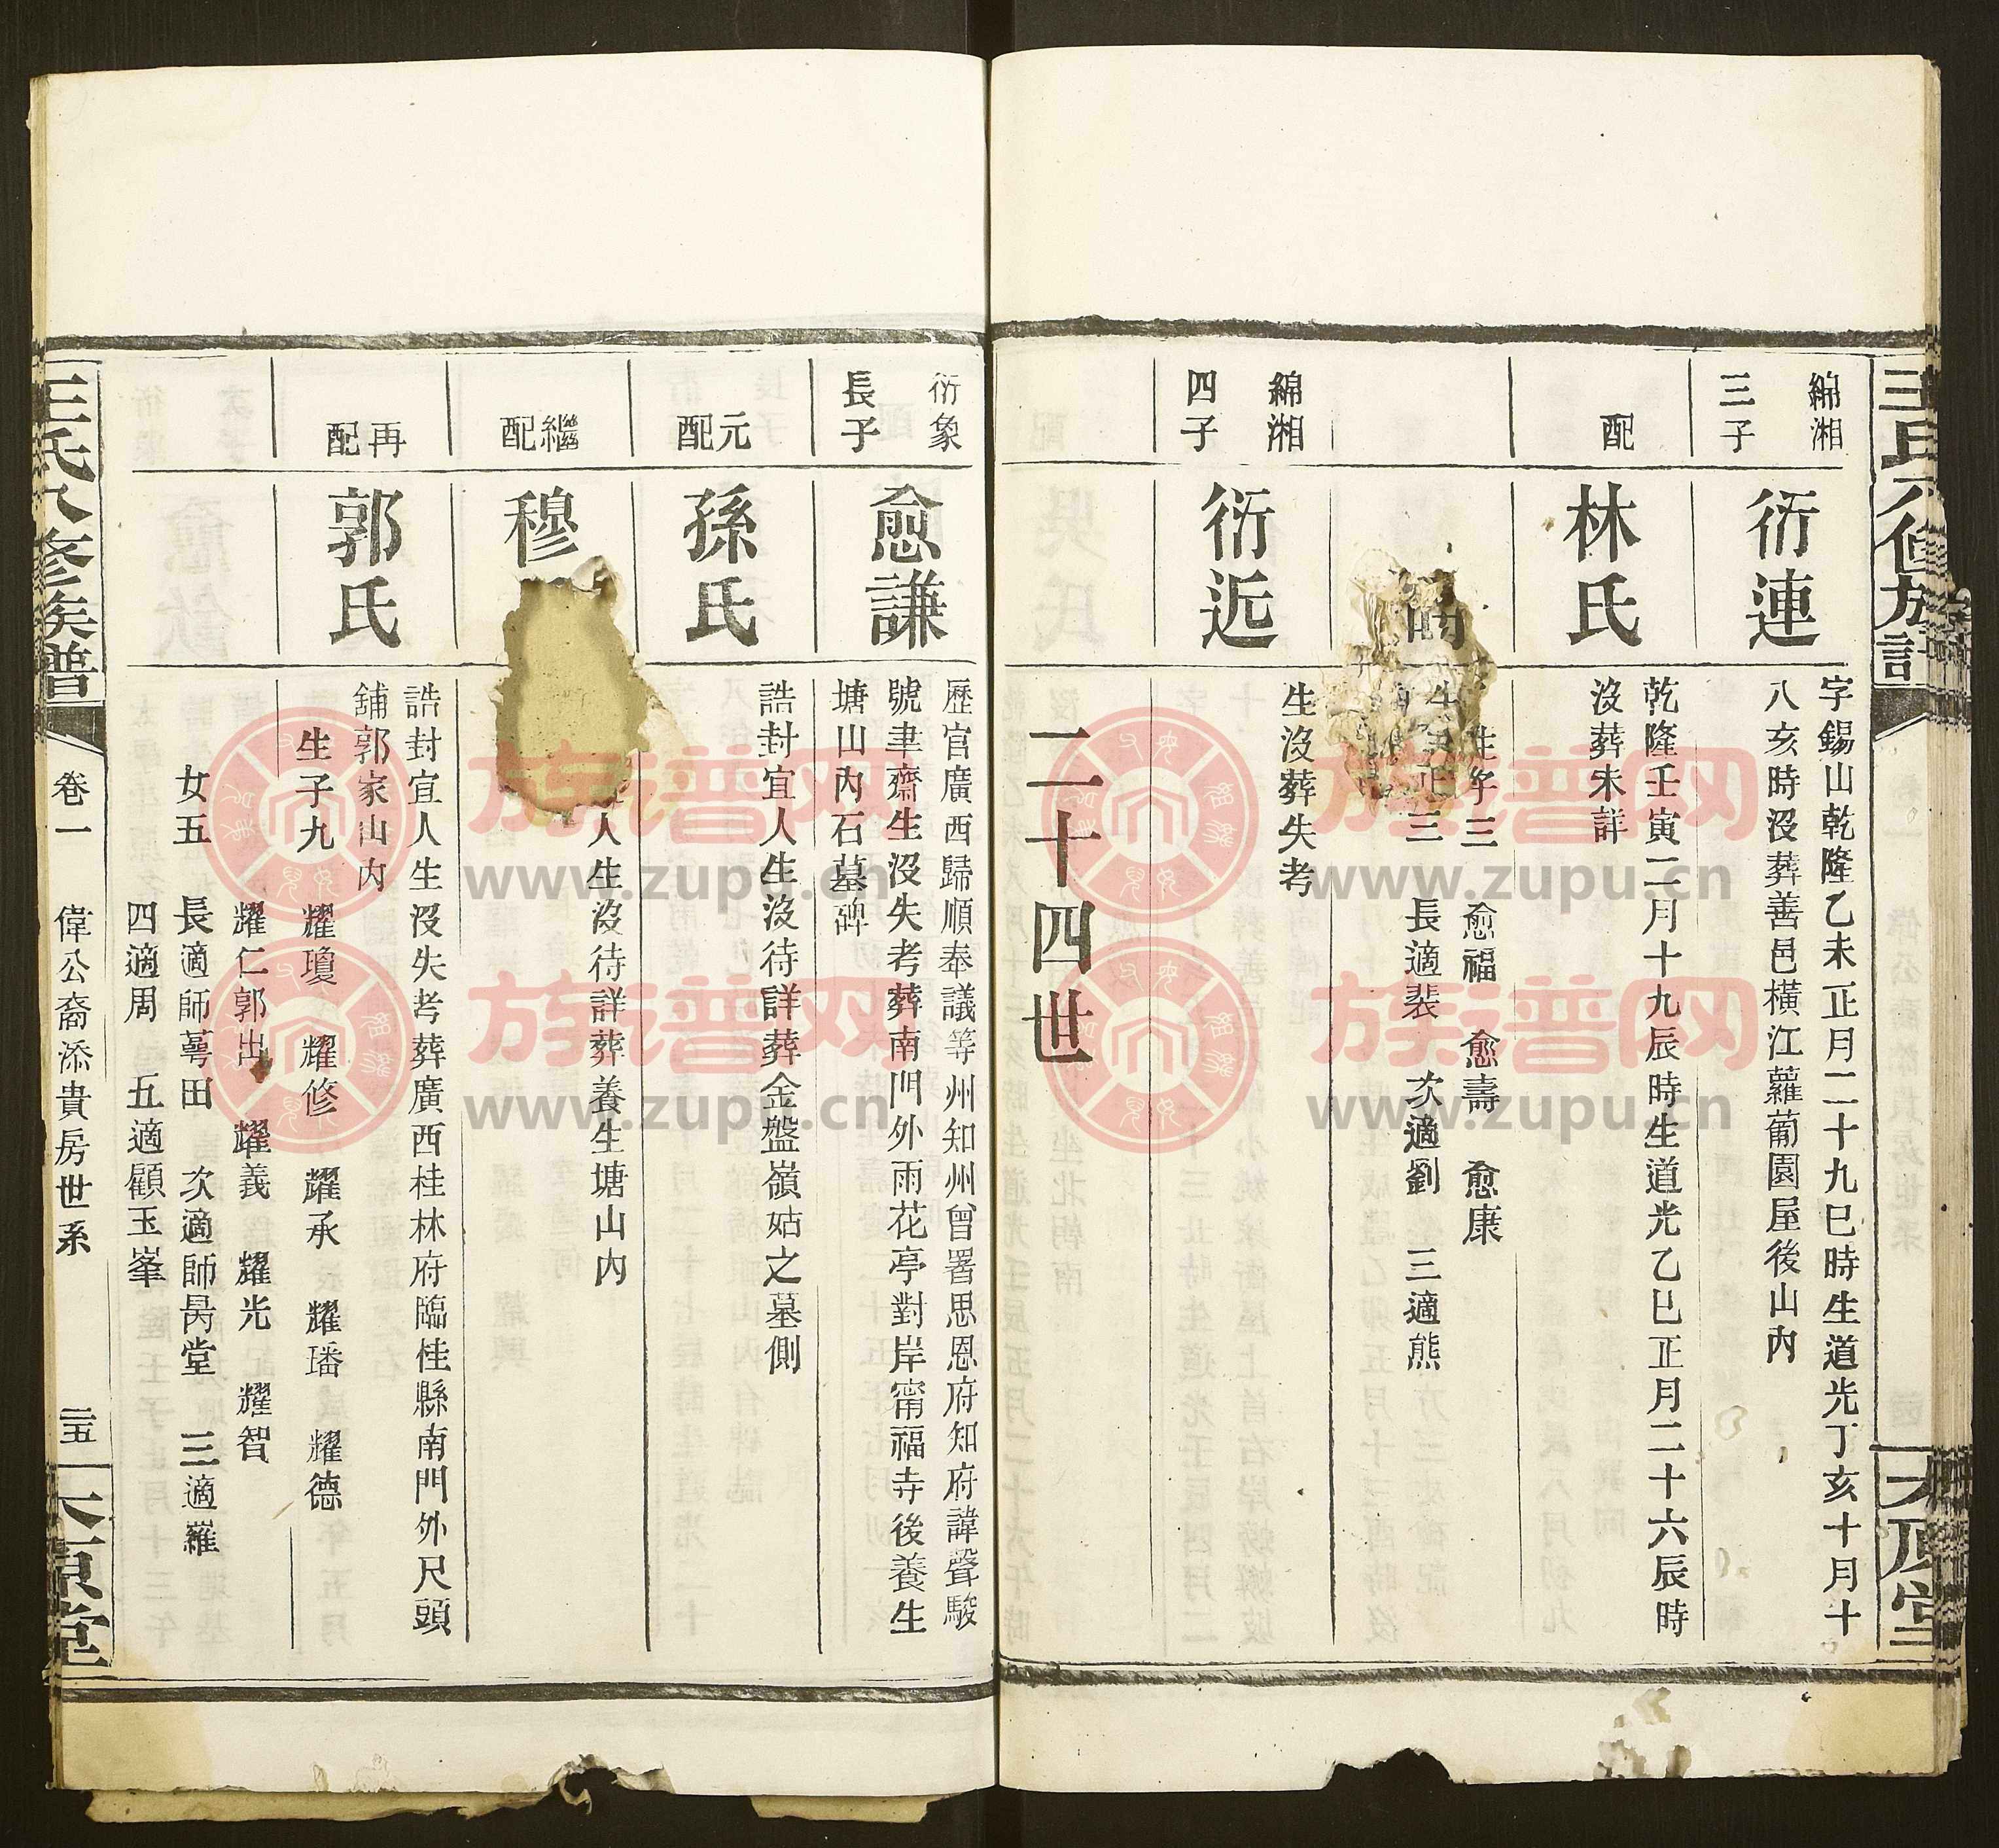 王氏八修族譜
太原堂
綿湘
三子
衍連
字錫山乾隆乙未正月二十九巳時生道光丁亥十月十
八亥時沒葬善邑橫江蘿蔔園屋後山內
配
林氏
乾隆壬寅二月十九辰時生道光乙巳正月二十六辰時
沒葬未詳
三 愈福 愈壽 愈康
三 長適裴 次適劉 三適熊
綿湘
四子
衍近
生沒葬失考
二十四世
衍象
長子
愈謙
歷官廣西歸順奉議等州知州曾署思恩府知府諱聲駿
號聿齋生沒失考葬南門外雨花亭對岸甯福寺後養生
塘山內石墓碑
元配
孫氏
誥封宜人生沒待詳葬金盤嶺姑之墓側
繼配
穆
人生沒待詳葬養生塘山內
再配
郭氏
誥封宜人生沒失考葬廣西桂林府臨桂縣南門外尺頭
舖郭家山內
生子九 耀瓊 耀修 耀承 耀璠 耀德
耀仁郭出 耀義 耀光 耀智
女五 長適師蕚田 次適師昺堂 三適羅
四適周 五適顧玉峯
王氏八修族譜
卷一
偉公裔添貴房世系
二五
太原堂
族譜网
www.zupu.cn
族譜网
www.zupu.cn
族譜网
www.zupu.cn
族譜网
www.zupu.cn